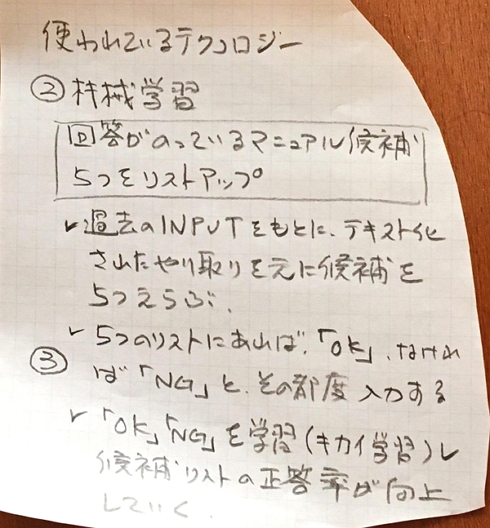 使われているテクノロジー
② 機械学習
回答がのっているマニュアル候補
5つをリストアップ
✓ 過去のINPUTをもとに、テキスト化
されたやり取りを元に候補を
5つえらぶ.
✓ 5つのリストにあれば、「OK」、なけれ
③ ば「NG」と、その都度入力する
✓ 「OK」「NG」を学習(キカイ学習)し
候補リストの正答率が向上
していく.